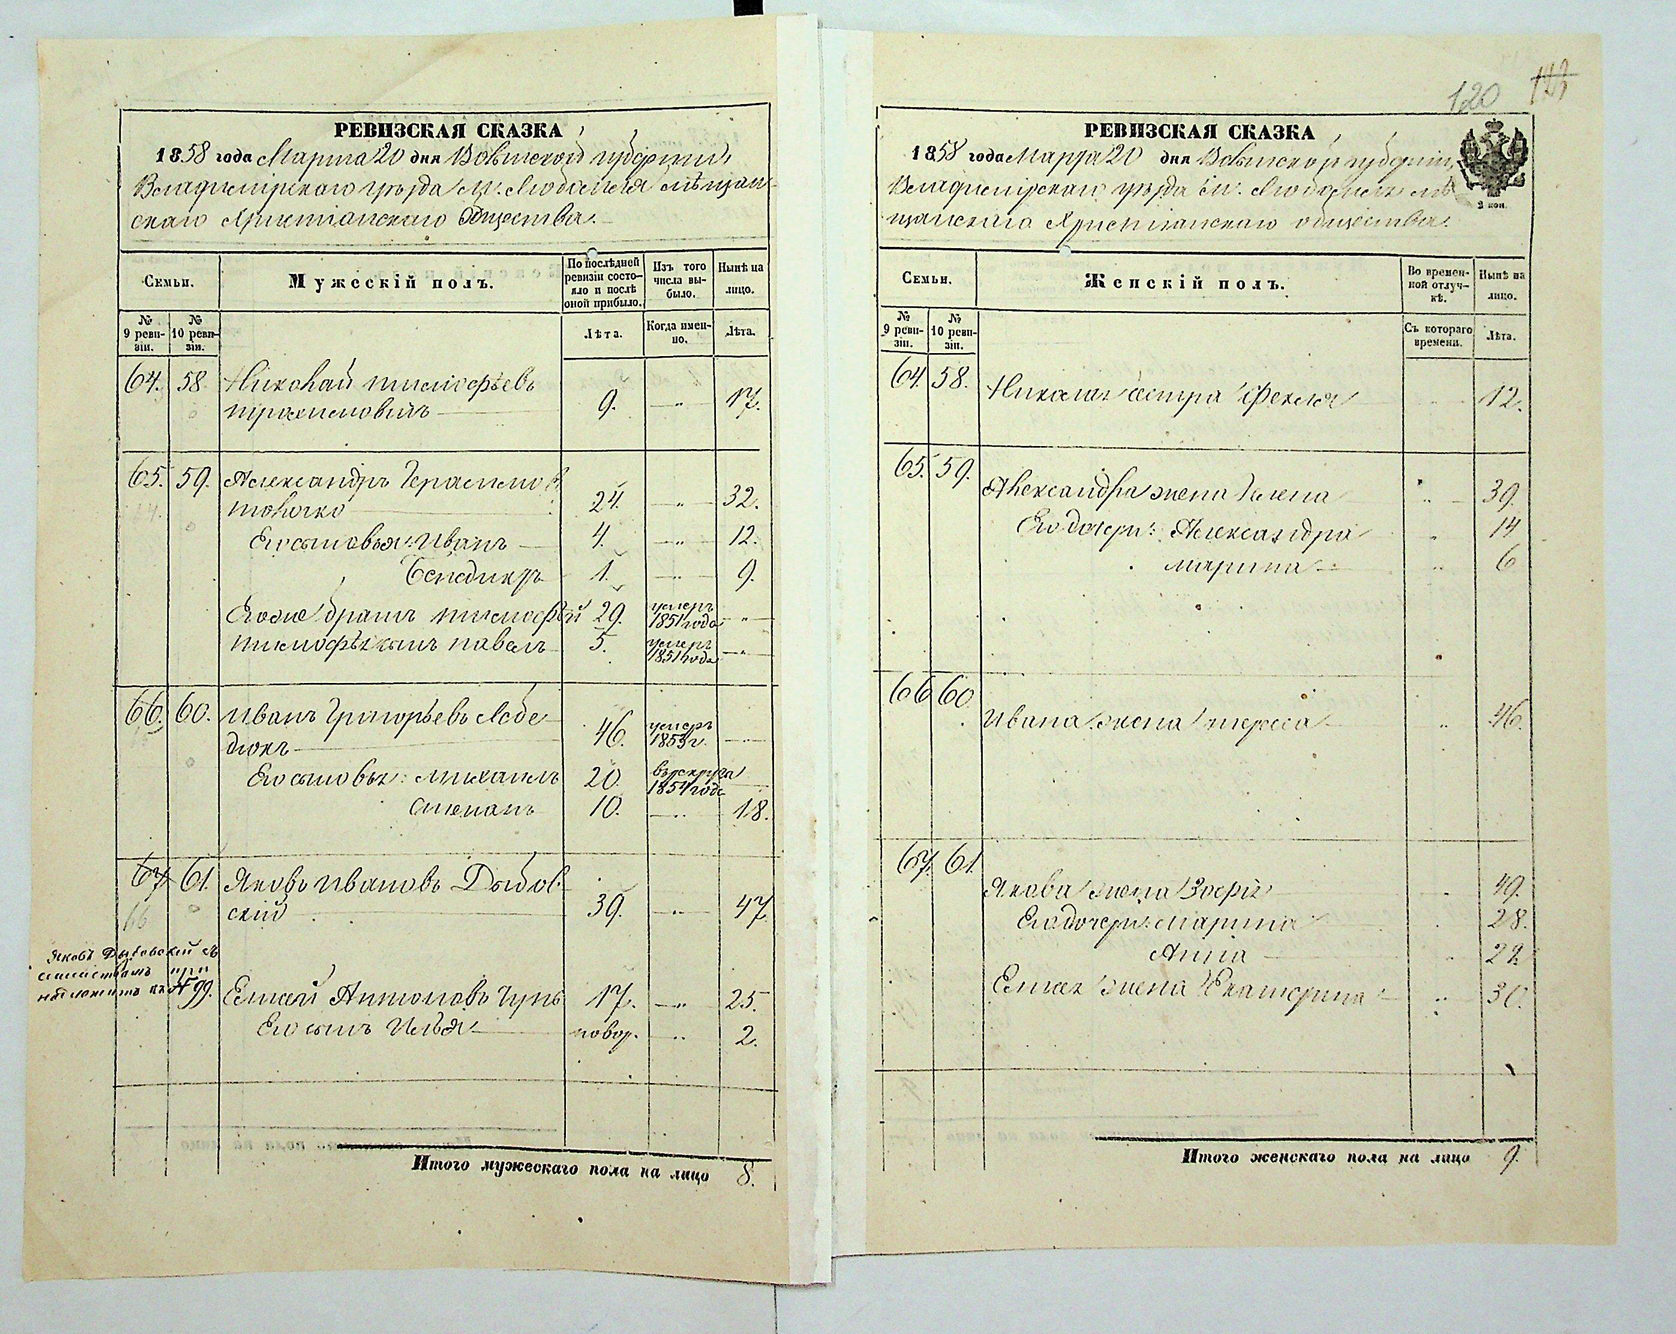 РЕВИЗСКАЯ СКАЗКА
1858 года Марта 20 дня Волынской губернии,
Владимірскаго уѣзда м. Любомля мѣщан-
скаго Христіанскаго общества.
Семьи.
Мужескій полъ.
По послѣдней ревизіи состояло и послѣ оной прибыло.
Изъ того числа выбыло.
Нынѣ на лицо.
№ 9 ревизіи.
№ 10 ревизіи.
Лѣта.
Когда именно.
Лѣта.
64. 58. Николай Тимофѣевъ
9. — „ — 17.
65. 59. Александръ Герасимов
24. — „ — 32.
Его сыновья: Иванъ — 4. — „ — 12.
Бенедиктъ 1. — „ — 9.
Его же братъ Тимофѣй 29. умеръ 1851 года — „ —
Тимофѣя сынъ Павелъ 5. умеръ 1851 года — „ —
66. 60. Иванъ Григорьевъ Лебе-
дюкъ — 46. умеръ 1853 г. —
Его сыновья: Михаилъ 20. въ рекрута 1854 года —
Степанъ 10. — „ — 18.
67. 61. Яковъ Ивановъ Дыбов-
скій — 39. — „ — 47.
66
Яковъ Дыбовскій съ
семействомъ при
№ 99.
Елисей Антоновъ 17. — „ — 25.
Его сынъ Илья — новор. — „ — 2.
Итого мужескаго пола на лицо 8.
120 123
РЕВИЗСКАЯ СКАЗКА
1858 года Марта 20 дня Волынской губерніи,
Владимірскаго уѣзда м. Любомля мѣ-
щанскаго Христіанскаго общества.
2 коп.
Семьи.
Женскій полъ.
Во временной отлучкѣ.
Нынѣ на лицо.
№ 9 ревизіи.
№ 10 ревизіи.
Съ котораго времени.
Лѣта.
64. 58. Николая сестра Фекла 12.
65. 59. Александра жена Елена „ 39.
Его дочери: Александра „ 14
Марина — „ 6
66 60 Ивана жена Тереса „ 46.
67. 61. Якова жена Зофія „ 49.
Его дочери: Марина 28.
Анна 22.
Елисея жена Екатерина — „ 30.
Итого женскаго пола на лицо 9.